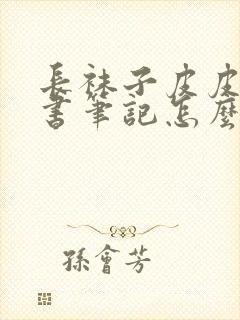 長袜子皮皮
書筆記怎麽
孫會芳